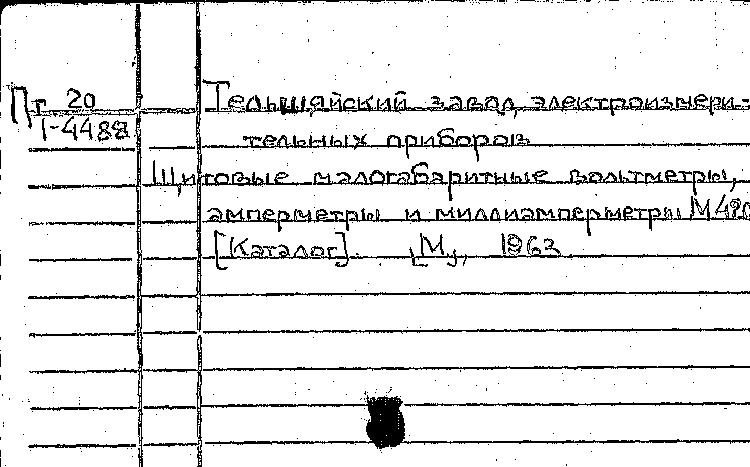 Пт 20
Т-4488
Тельшяйский завод электроизмери-
тельных приборов
Щитовые малогабаритные вольтметры,
амперметры и миллиамперметры М420
[Каталог]. [М.], 1963